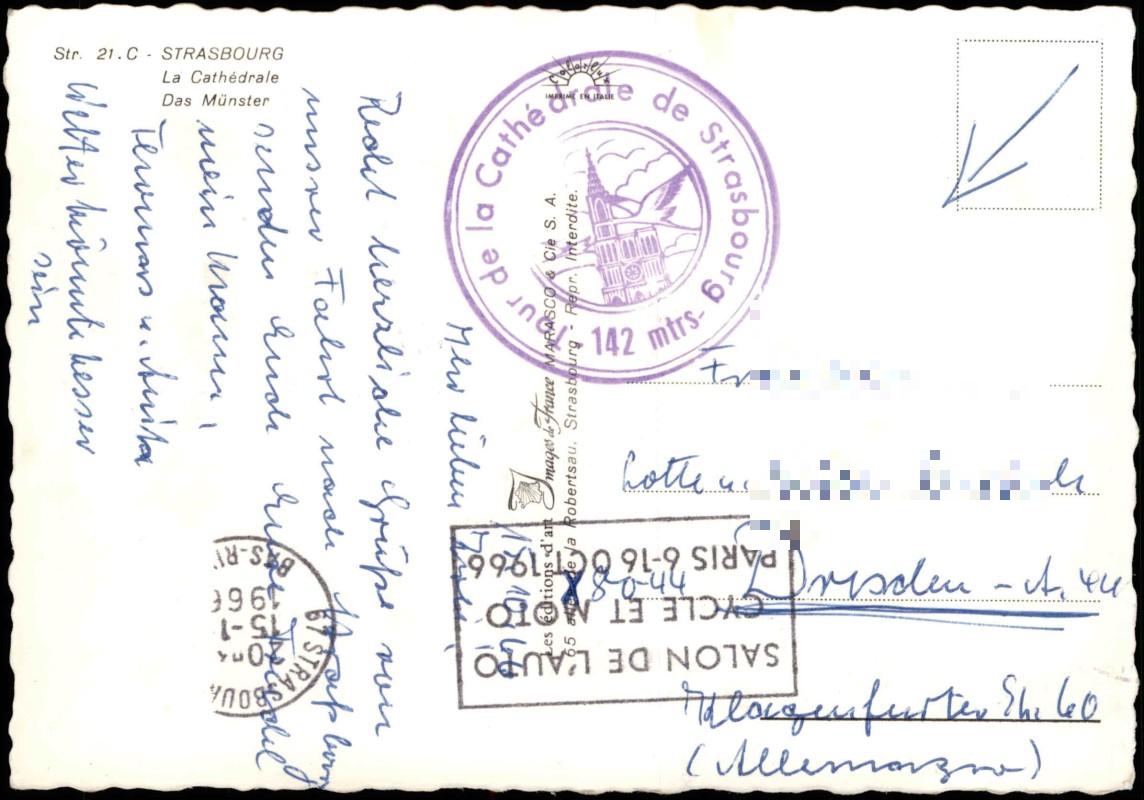 Str. 21.C - STRASBOURG
La Cathédrale
Das Münster
Colorlux
IMPRIMÉ EN ITALIE
Tour de la Cathédrale de Strasbourg
142 mtrs-
Les éditions d'art Images de France MARASCO & Cie S. A.
de la Robertsau, Strasbourg - Repr. Interdite.
Ihr Lieben
Recht herzliche Grüße von
unsrer Fahrt nach Straßburg
senden Euch Eure
mein Mann,
Thomas u. Anita
Wetter könnte besser
sein
67 STRASBOURG
15-1
1966
BAS-RH
SALON DE L'AUTO
CYCLE ET MOTO
PARIS 6-16 OCT 1966
Lotte u.
X 8044 Dresden - A. 44
Klagenfurter Str. 60
(Allemagne)